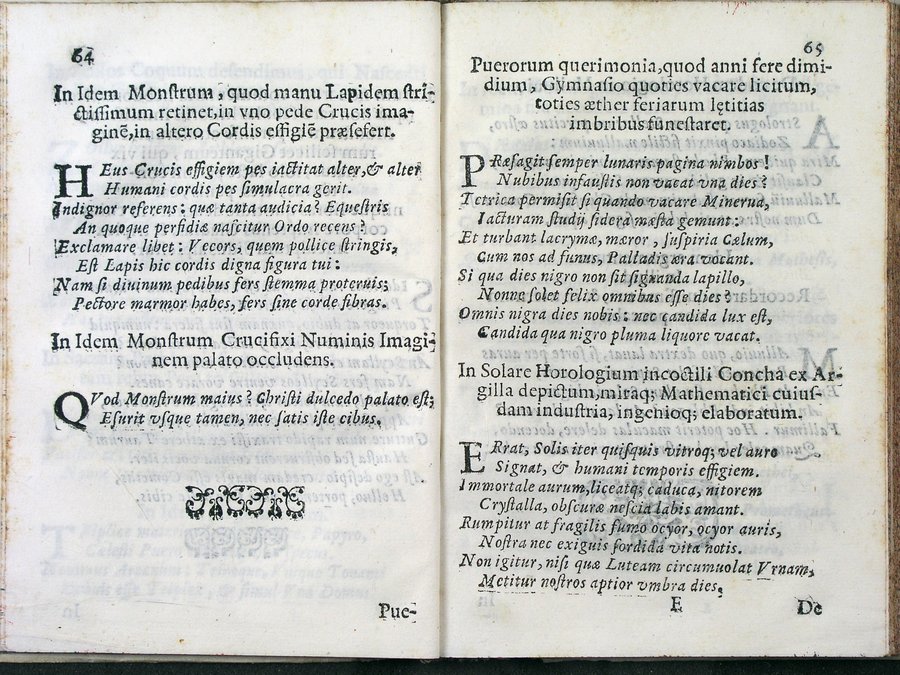 64
In Idem Monstrum, quod manu Lapidem stri-
ctissimum retinet, in vno pede Crucis ima-
ginẽ, in altero Cordis effigiẽ præsefert.
HEus Crucis effigiem pes iactitat alter, & alter
Humani cordis pes simulacra gerit.
Indignor referens: quæ tanta audicia? Equestris
An quoque perfidiæ nascitur Ordo recens?
Exclamare libet: Vecors, quem pollice stringis,
Est Lapis hic cordis digna figura tui:
Nam si diuinum pedibus fers stemma proteruis;
Pectore marmor habes, fers sine corde fibras.
In Idem Monstrum Crucifixi Numinis Imagi-
nem palato occludens.
QVod Monstrum maius? Christi dulcedo palato est;
Esurit vsque tamen, nec satis iste cibus.
Pue-
65
Puerorum querimonia, quod anni fere dimi-
dium, Gymnasio quoties vacare licitum,
toties æther feriarum lętitias
imbribus funestaret.
PRæsagit semper lunaris pagina nimbos!
Nubibus infaustis non vacat vna dies?
Tetrica permisit si quando vacare Minerua,
Iacturam studij sidera mæsta gemunt:
Et turbant lacrymæ, mæror, suspiria Cælum,
Cum nos ad funus, Palladis ora vocant.
Si qua dies nigro non sit signanda lapillo,
Nonne solet felix omnibus esse dies?
Omnis nigra dies nobis: nec candida lux est,
Candida qua nigro pluma liquore vacat.
In Solare Horologium incoctili Concha ex Ar-
gilla depictum, miraq; Mathematici cuius-
dam industria, ingenioq; elaboratum.
ERrat, Solis iter quisquis vitroq; vel auro
Signat, & humani temporis effigiem.
Immortale aurum, liceatq; caduca, nitorem
Crystalla, obscuræ nescia labis amant.
Rumpitur at fragilis fumo ocyor, ocyor auris,
Nostra nec exiguis fordida vita notis.
Non igitur, nisi quæ Luteam circumuolat Vrnam,
Metitur nostros aptior vmbra dies.
E
De